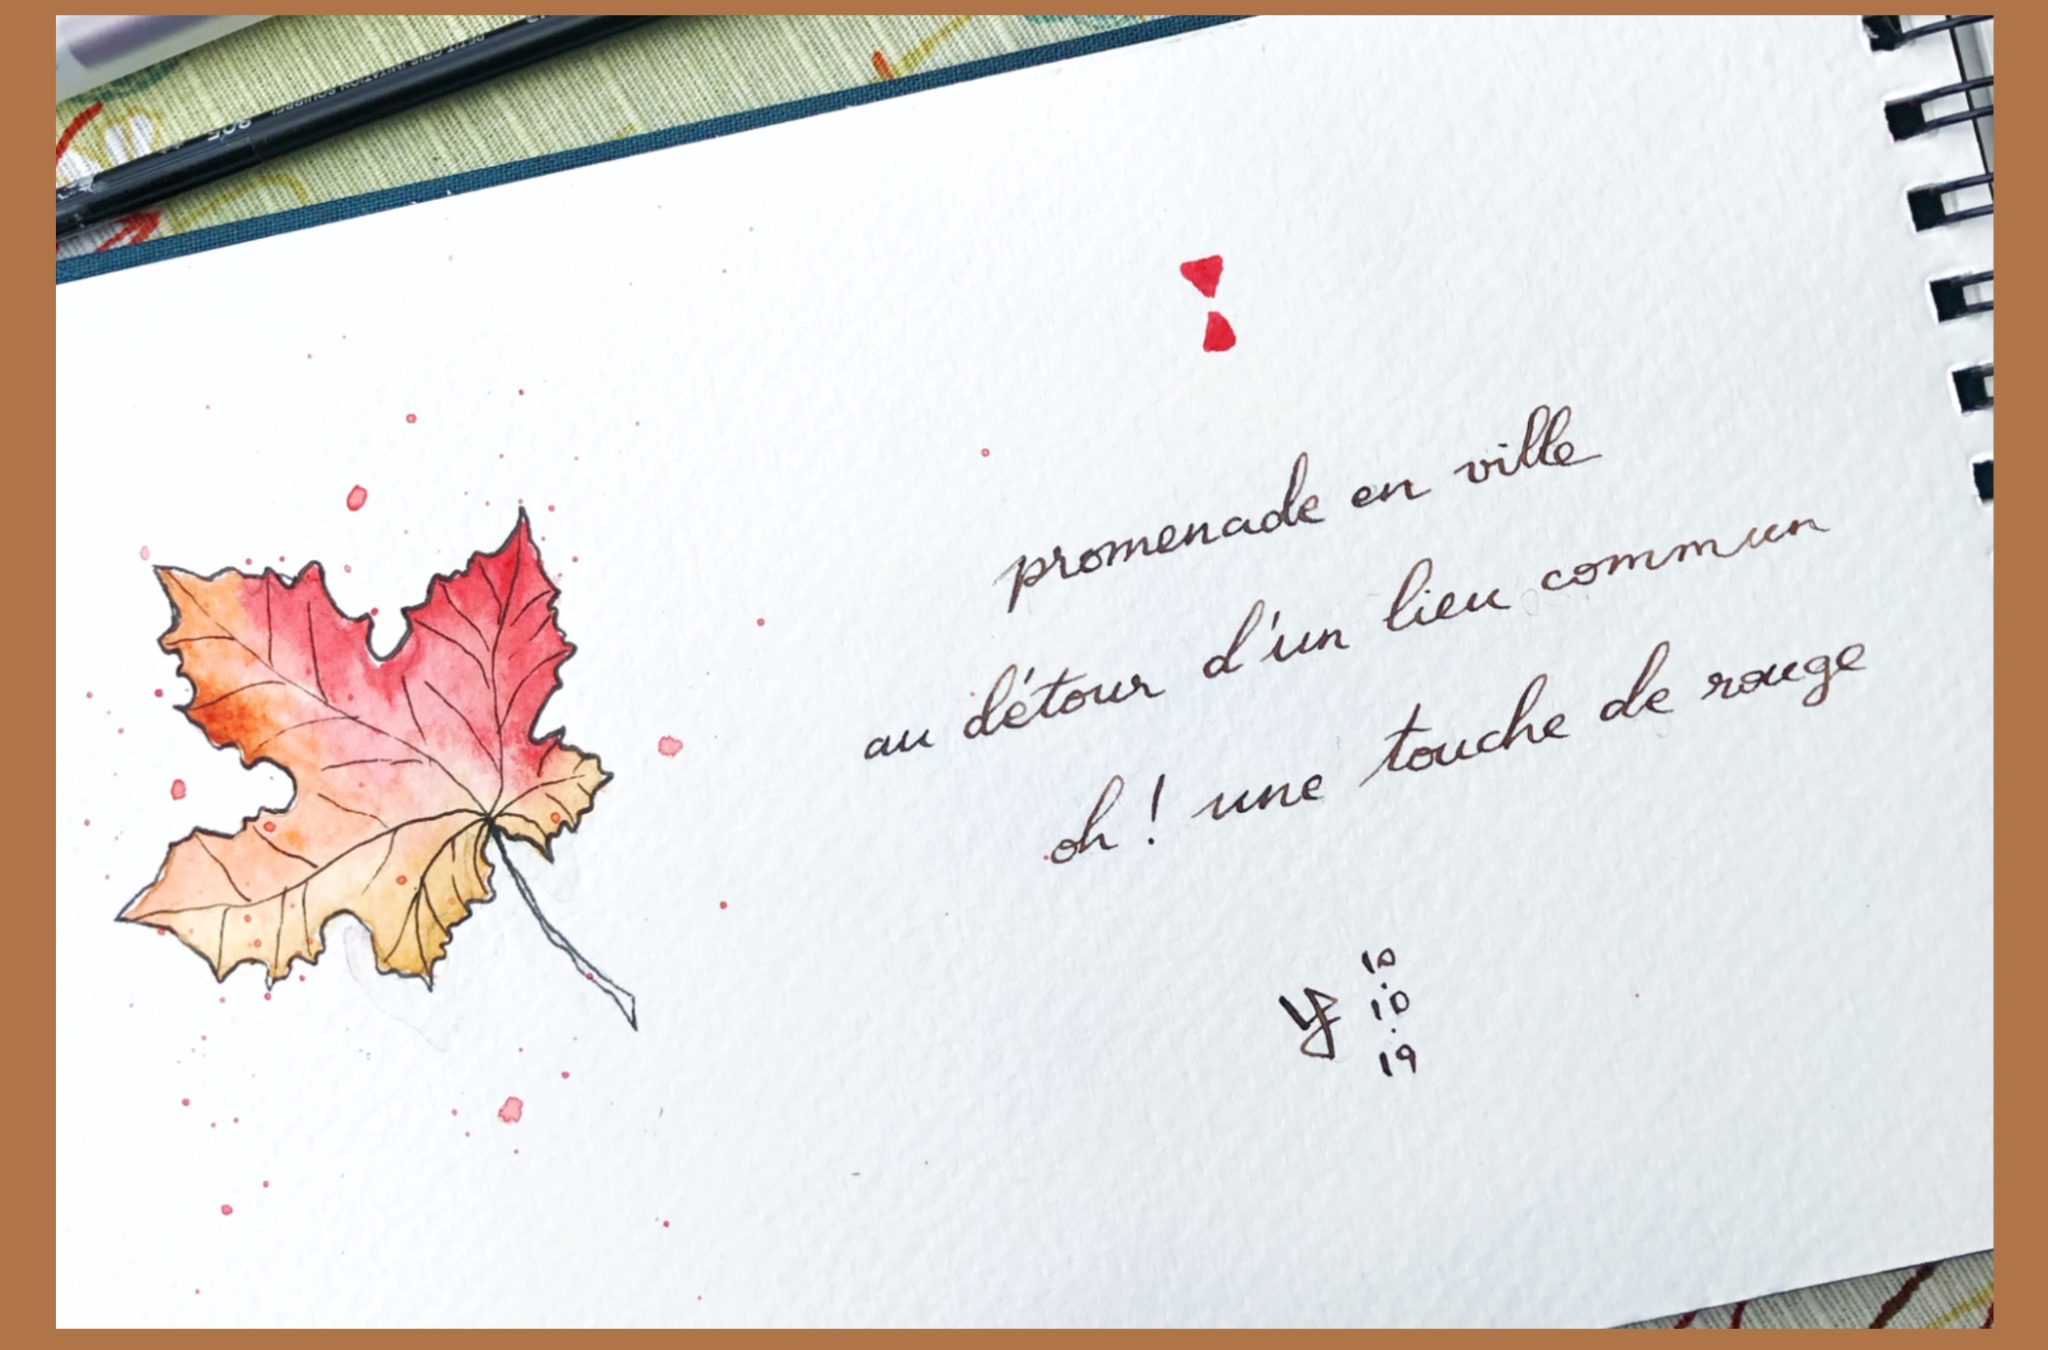 promenade en ville
au détour d'un lieu commun
oh ! une touche de rouge
y
10
.
10
.
19